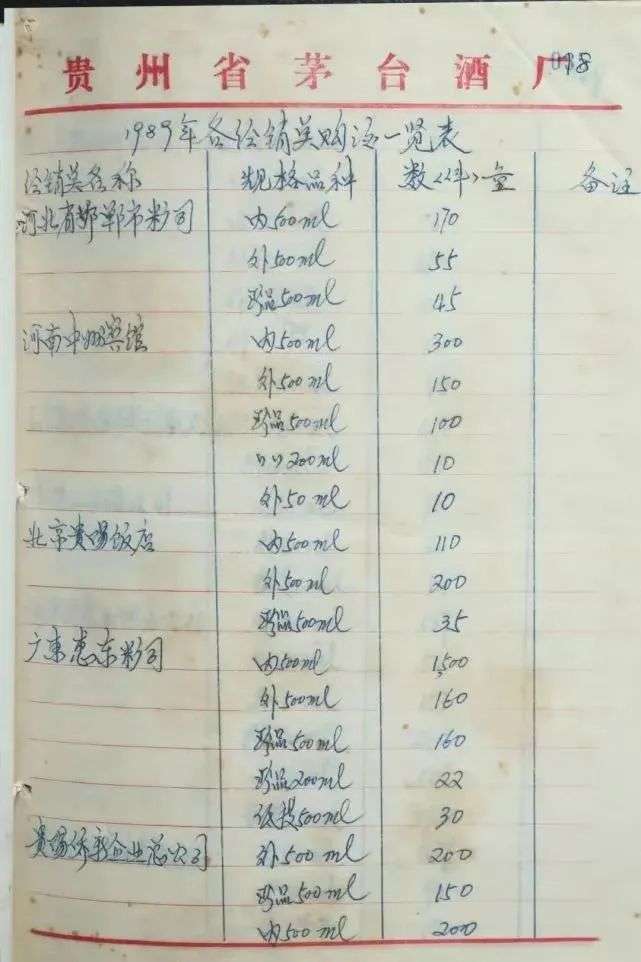 贵州省茅台酒厂 098
1989年各经销单购酒一览表
经销单名称 规格品种 数(件)量 备注
河北省邯郸市糖司 内500ml 170
外500ml 55
珍品500ml 45
河南中州宾馆 内500ml 300
外500ml 150
珍品500ml 100
〃〃200ml 10
外50ml 10
北京贵阳饭店 内500ml 110
外500ml 200
珍品500ml 35
广东惠东糖司 内500ml 1,500
外500ml 160
珍品500ml 160
珍品200ml 22
低度500ml 30
贵阳侨新企业总公司 外500ml 200
珍品500ml 150
内500ml 200